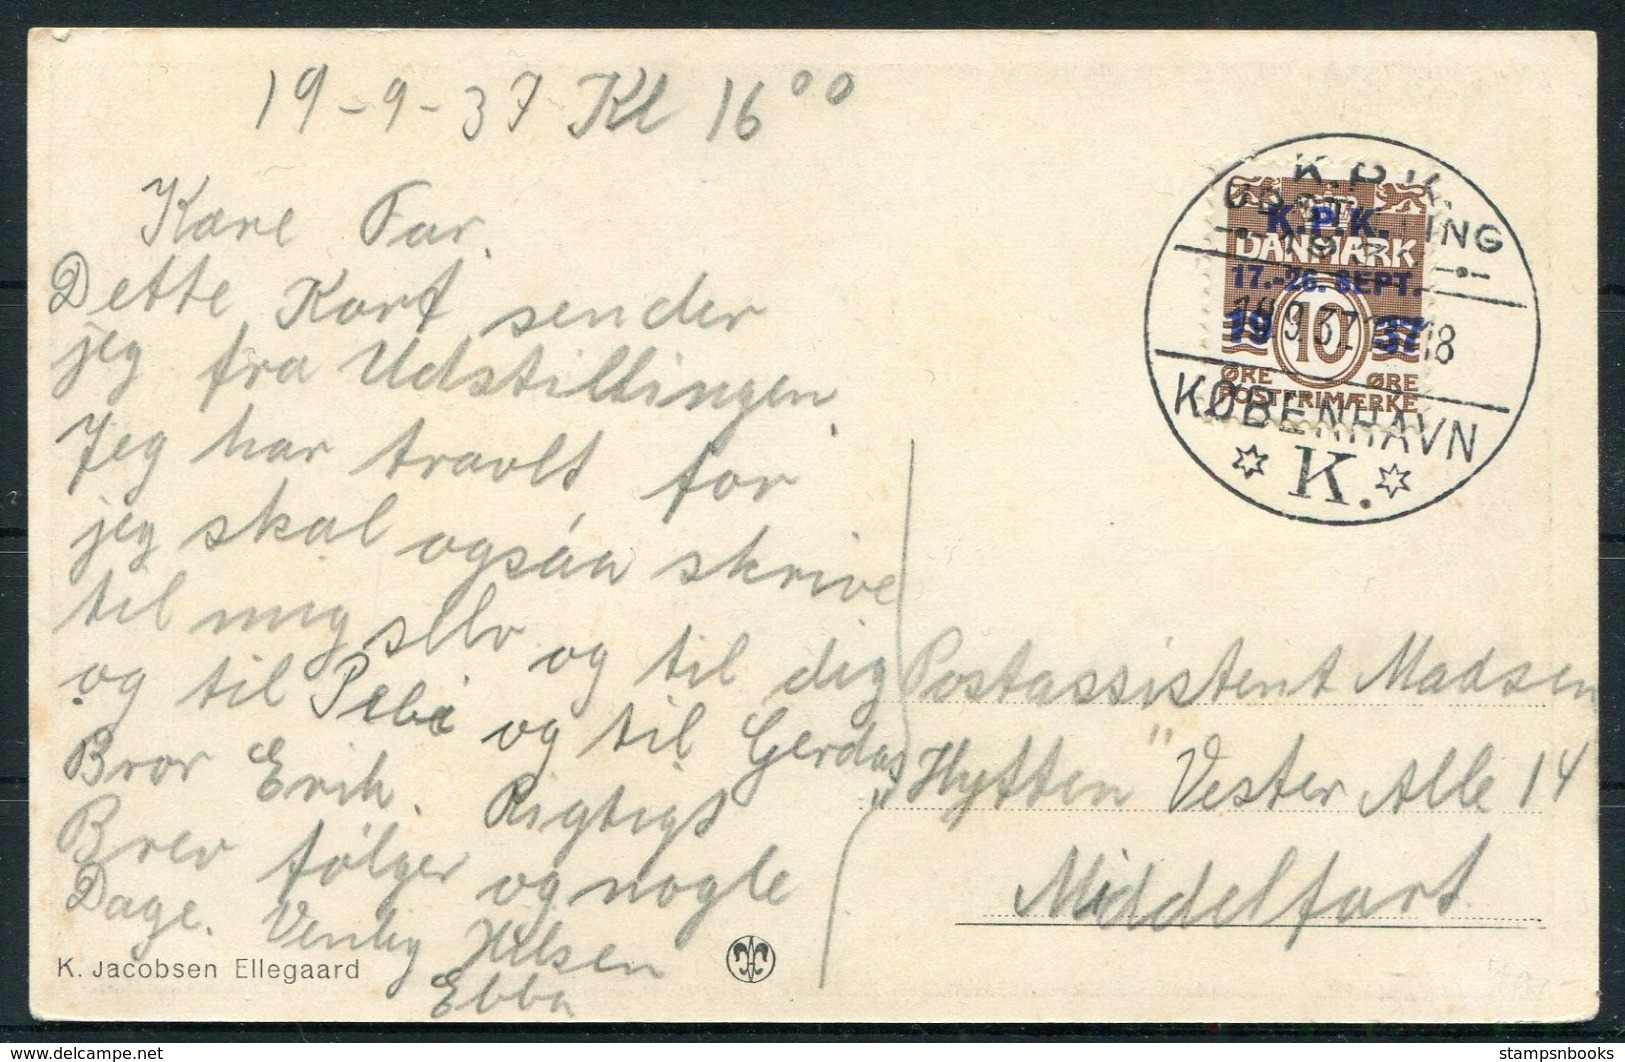 19-9-37 Kl 16⁰⁰
Kære Far.
Dette Kort sender
jeg fra Udstillingen
Jeg har travlt for
jeg skal ogsaa skrive
til mig sllv og til dig
og til Pebi og til Gerdas
Bror Erik. Rigtigt
Brev følger og nogle
Dage. Venlig Hilsen
Ebba
K. Jacobsen Ellegaard
K.P.K.
UDSTILLING
19 9 37 18
KØBENHAVN
K.
K.P.K.
DANMARK
17.-26. SEPT.
19 10 37
ØRE ØRE
POSTFRIMÆRKE
Postassistent Madsen
„Hytten" Vester Alle 14
Middelfart
stampsnbooks
delcampe.net